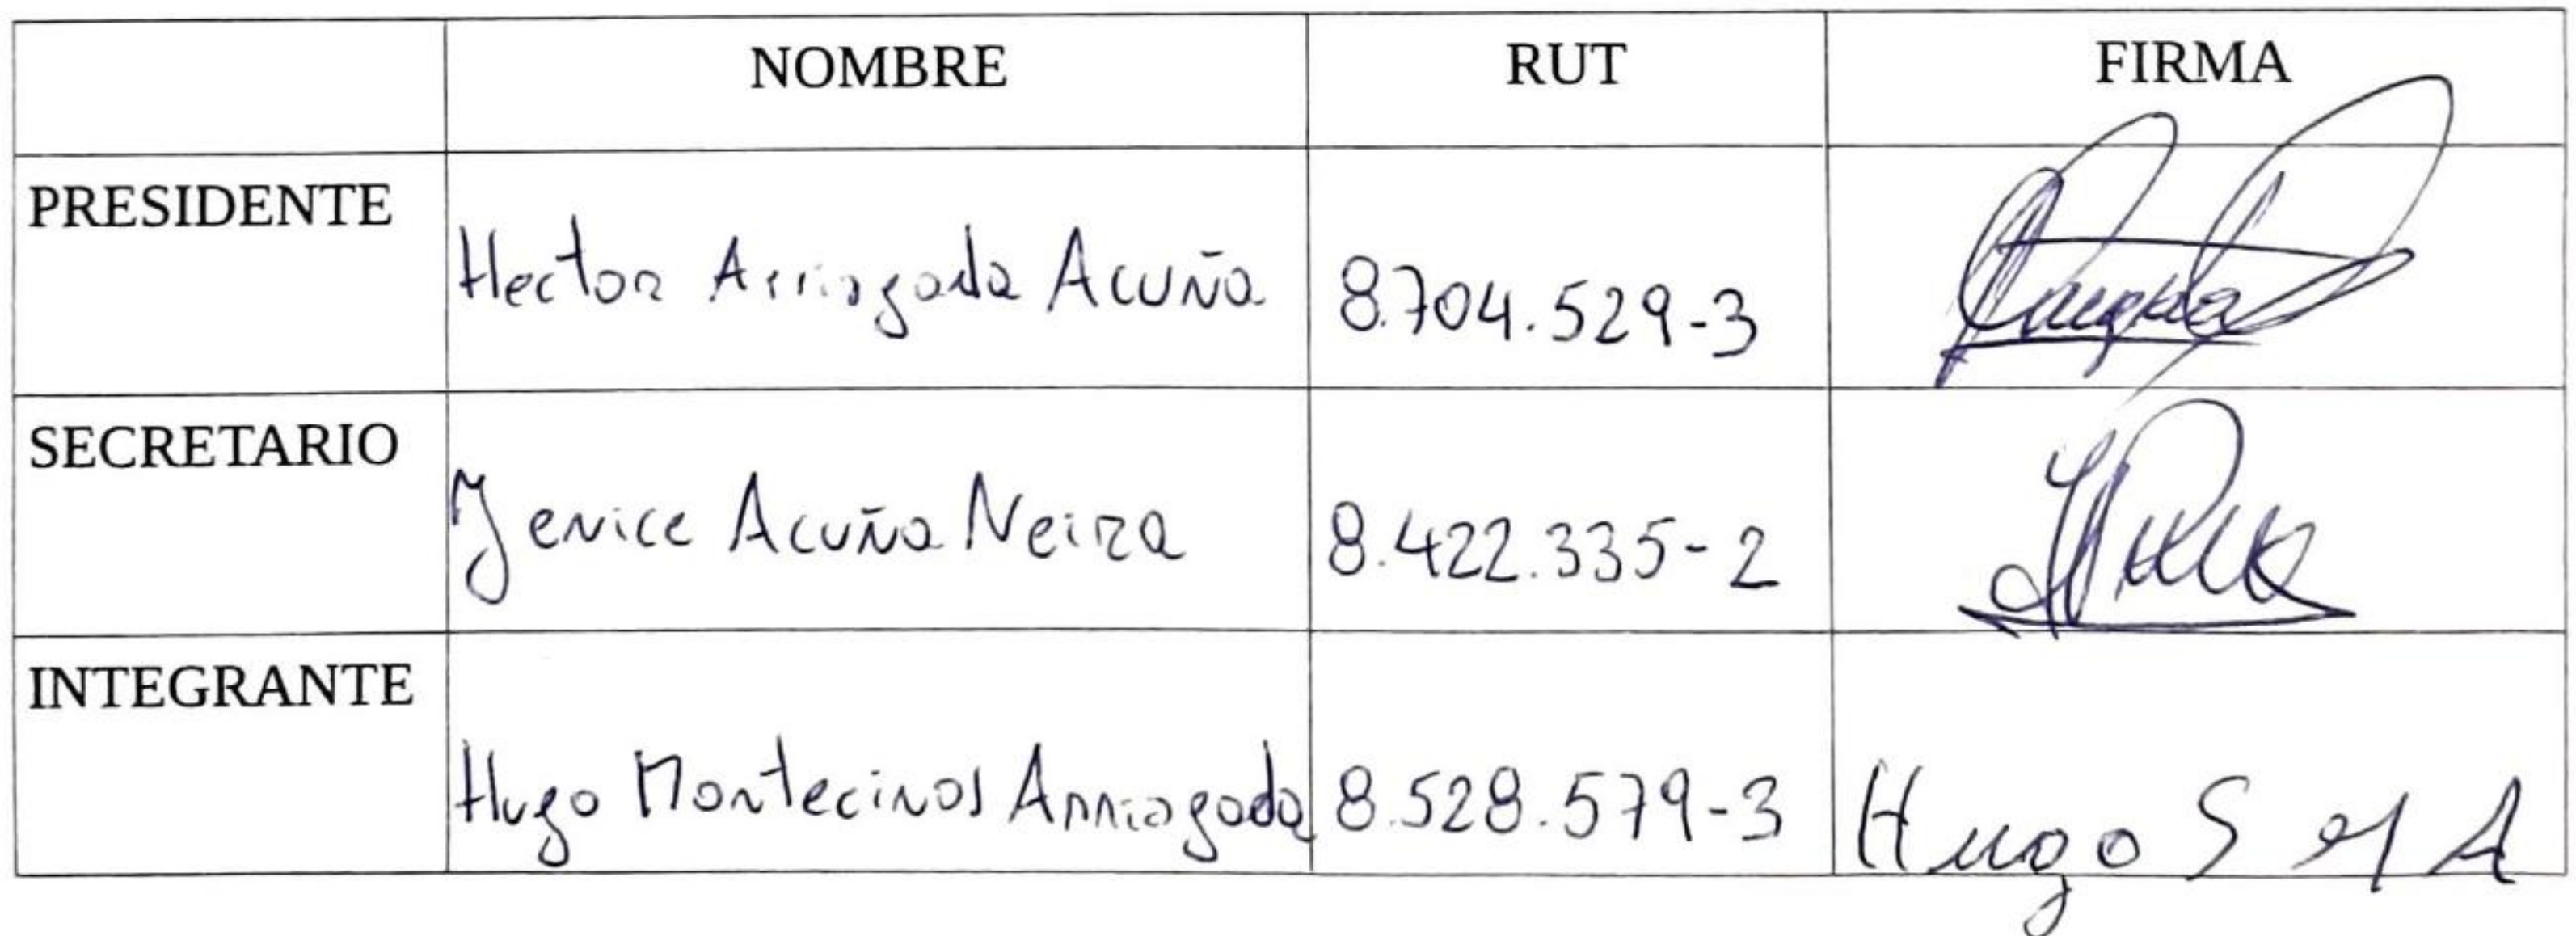 NOMBRE RUT FIRMA
PRESIDENTE Hector Arriagada Acuña 8.704.529-3
SECRETARIO Jenice Acuña Neira 8.422.335-2
INTEGRANTE Hugo Montecinos Arriagada 8.528.579-3 Hugo S M A